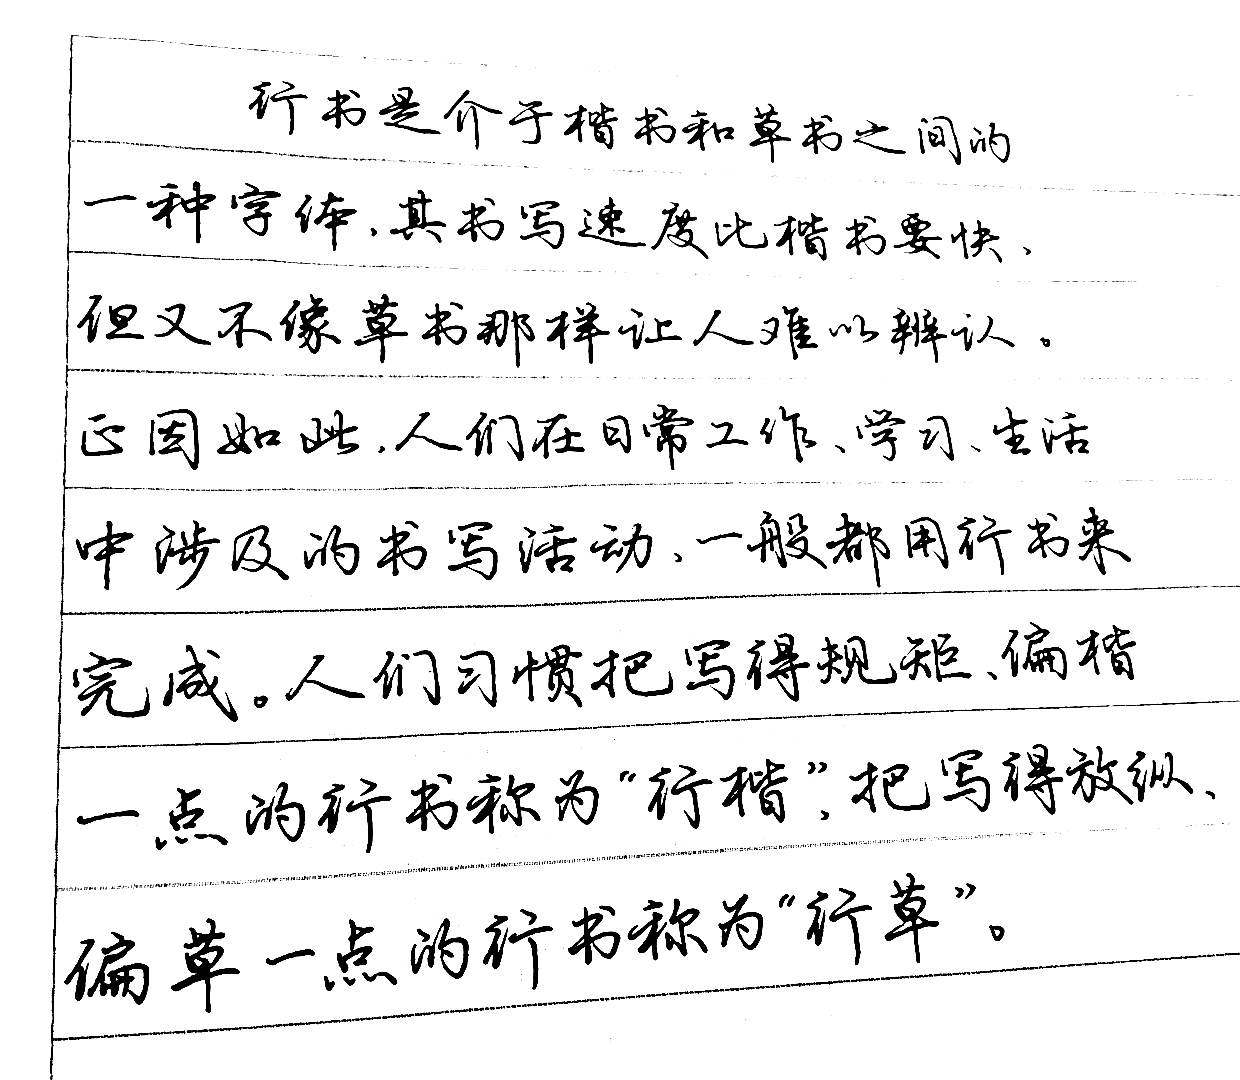 行书是介于楷书和草书之间的
一种字体,其书写速度比楷书要快、
但又不像草书那样让人难以辨认。
正因如此,人们在日常工作、学习、生活
中涉及的书写活动、一般都用行书来
完成。人们习惯把写得规矩、偏楷
一点的行书称为“行楷”,把写得放纵、
偏草一点的行书称为“行草”。